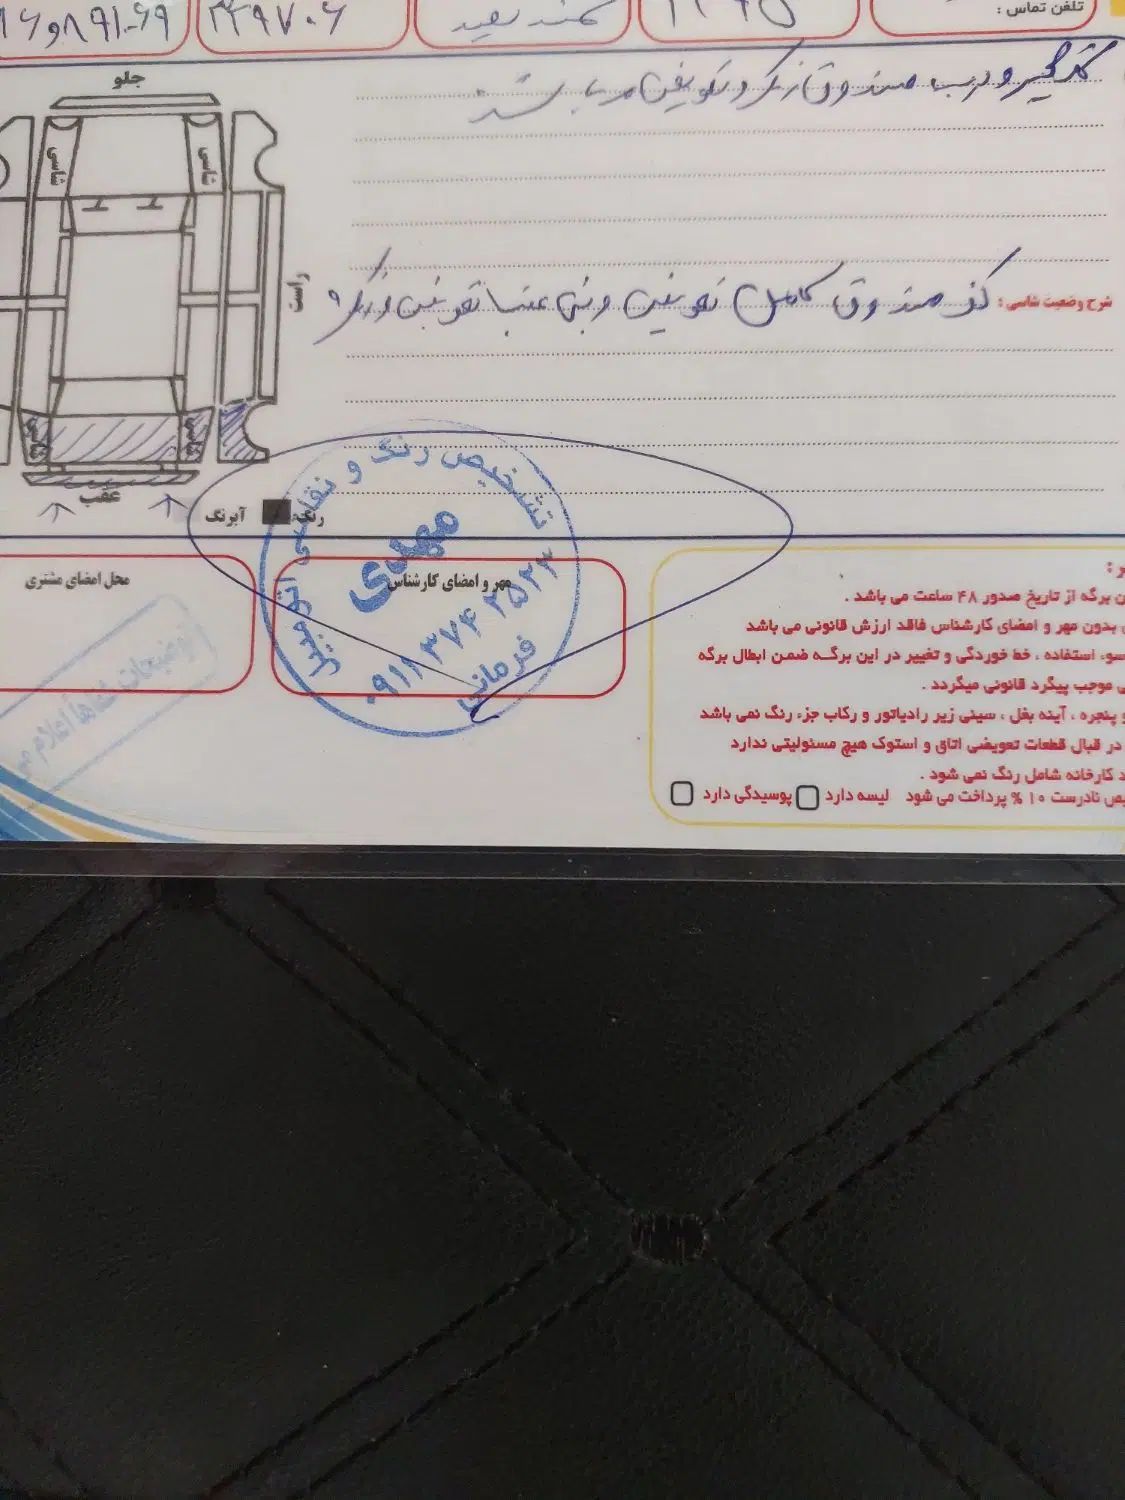 تلفن تماس :
۱۳۹۵
سمند سفید
۳۴۹۷۰۶
گلگیر و درب صندوق رنگ و تعویض می باشد
جلو
شاسی
شاسی
راست
شرح وضعیت شاسی : کف صندوق کامل تعویض و سینی عقب تعویض و رنگ
شاسی
شاسی
عقب
رنگ
آبرنگ
تشخیص رنگ و نقاشی اتومبیل
مهدی
۰۹۱۱ ۳۷۴ ۲۵۲۳
فرمانی
مهر و امضای کارشناس
محل امضای مشتری
برگه از تاریخ صدور ۴۸ ساعت می باشد .
بدون مهر و امضای کارشناس فاقد ارزش قانونی می باشد
سوء استفاده ، خط خوردگی و تغییر در این برگه ضمن ابطال برگه
موجب پیگرد قانونی میگردد .
و پنجره ، آینه بغل ، سینی زیر رادیاتور و رکاب جزء رنگ نمی باشد
در قبال قطعات تعویضی اتاق و استوک هیچ مسئولیتی ندارد
کارخانه شامل رنگ نمی شود .
نادرست ۱۰ % پرداخت می شود لیسه دارد پوسیدگی دارد